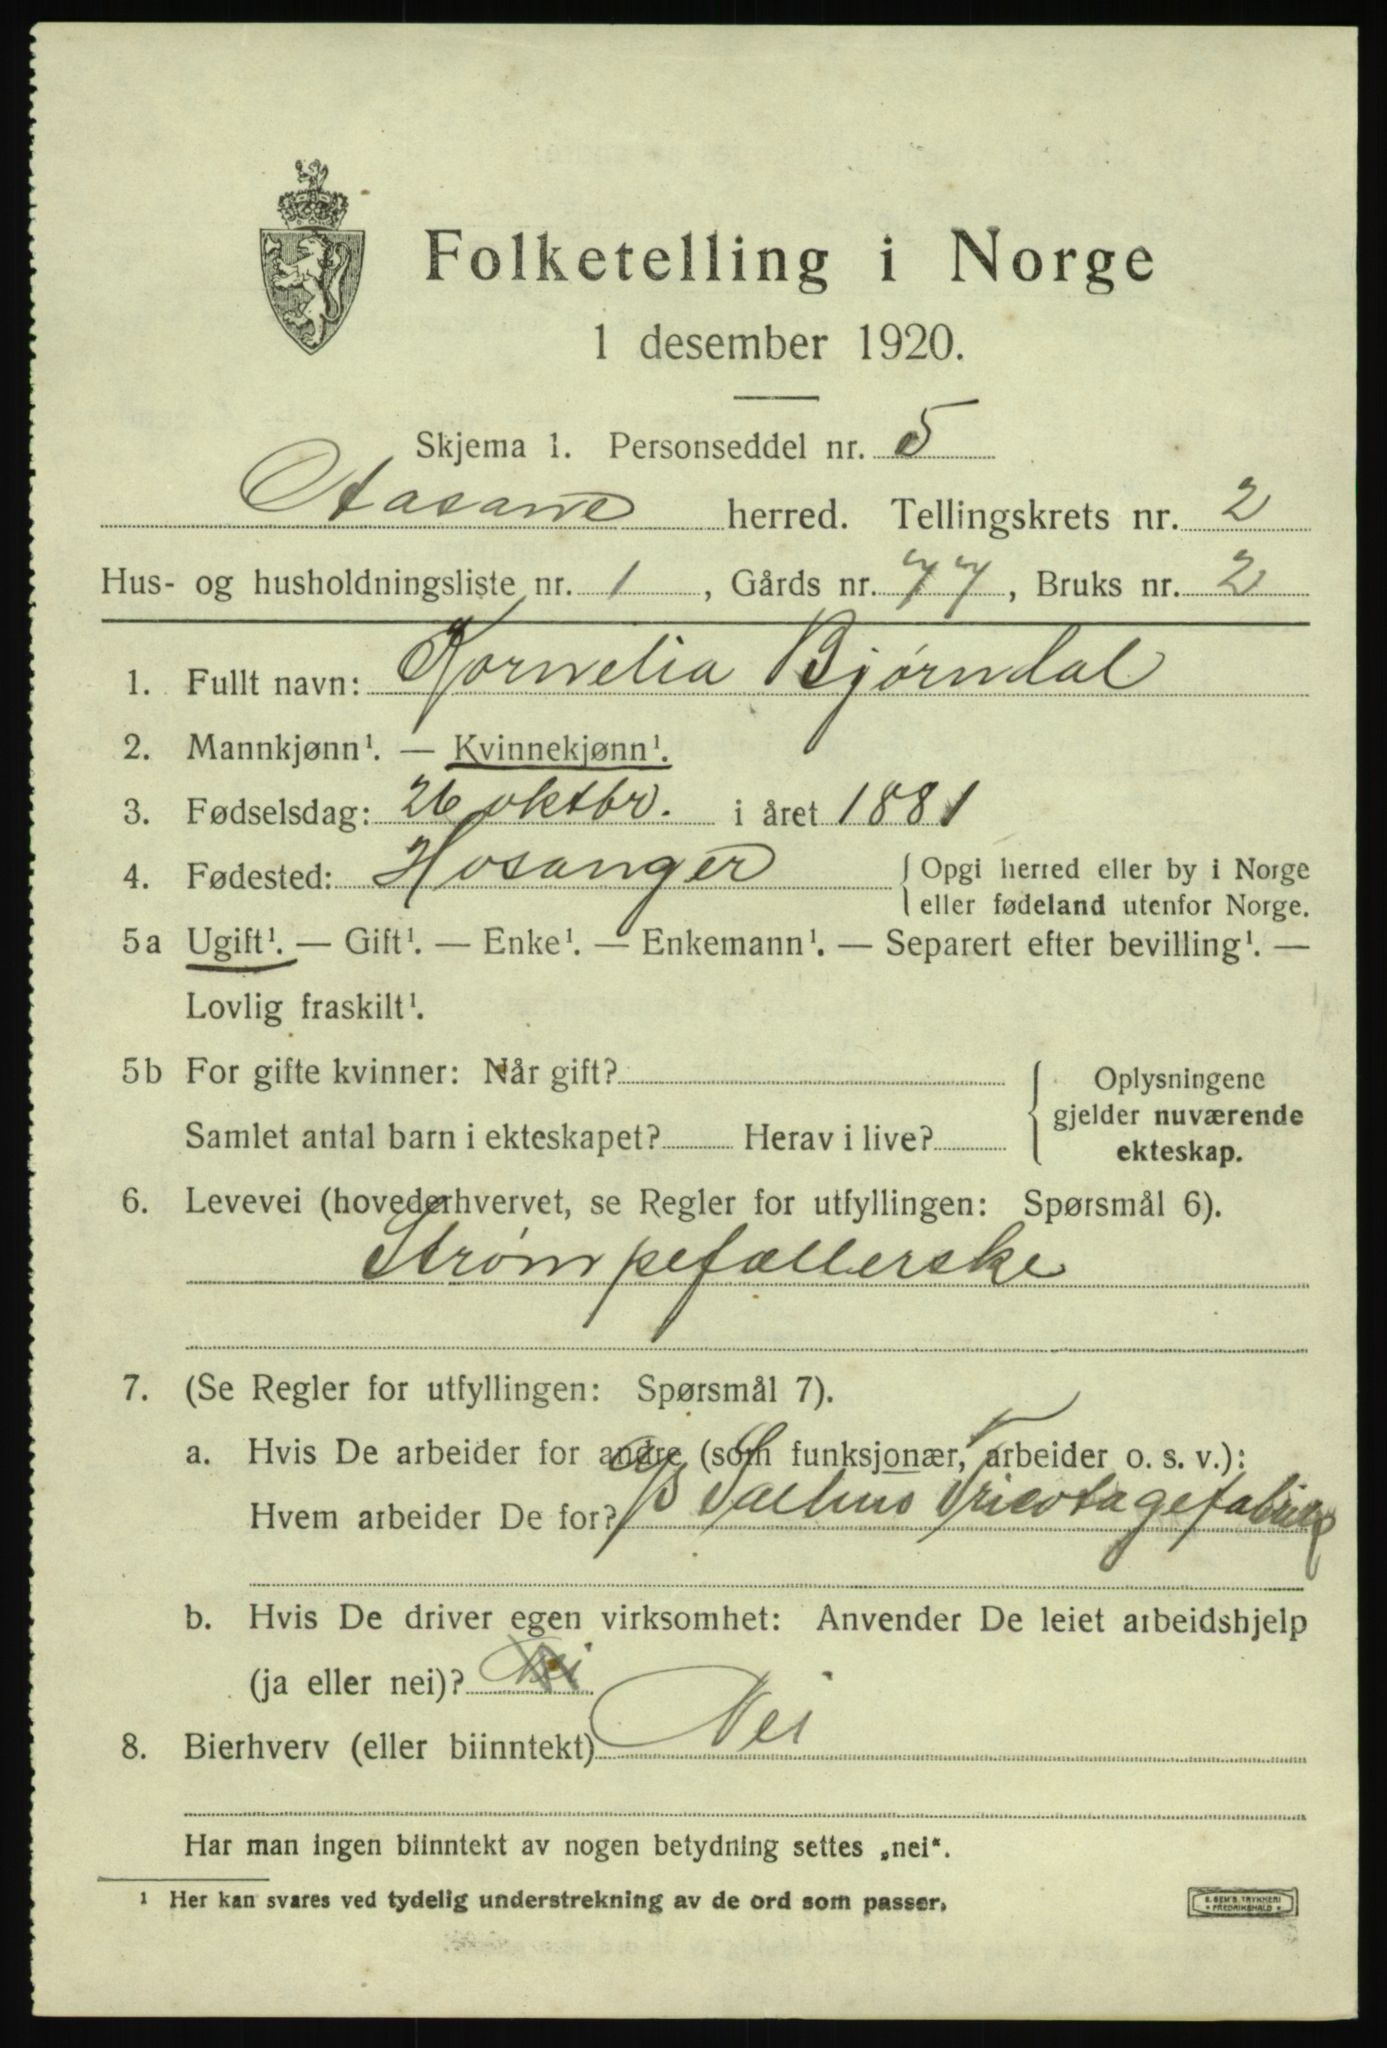 Folketelling i Norge
1 desember 1920.
Skjema 1. Personseddel nr. 5
Aasane herred. Tellingskrets nr. 2
Hus- og husholdningsliste nr. 1, Gårds nr. 77, Bruks nr. 2
1. Fullt navn: Kornelia Bjørndal
2. Mannkjønn¹. — Kvinnekjønn¹.
3. Fødselsdag: 26 oktbr. i året 1881
4. Fødested: Hosanger { Opgi herred eller by i Norge
eller fødeland utenfor Norge.
5a Ugift¹. — Gift¹. — Enke¹. — Enkemann¹. — Separert efter bevilling¹. —
Lovlig fraskilt¹.
5b For gifte kvinner: Når gift?
Samlet antal barn i ekteskapet? Herav i live?
Oplysningene
gjelder nuværende
ekteskap.
6. Levevei (hovederhvervet, se Regler for utfyllingen: Spørsmål 6).
Strømpefællerske
7. (Se Regler for utfyllingen: Spørsmål 7).
a. Hvis De arbeider for andre (som funksjonær, arbeider o. s. v.):
Hvem arbeider De for? Salhus Tricotagefabrik
b. Hvis De driver egen virksomhet: Anvender De leiet arbeidshjelp
(ja eller nei)? Nei
8. Bierhverv (eller biinntekt) Nei
Har man ingen biinntekt av nogen betydning settes „nei“.
¹ Her kan svares ved tydelig understrekning av de ord som passer.
E. SEM'S TRYKKERI
FREDRIKSHALD